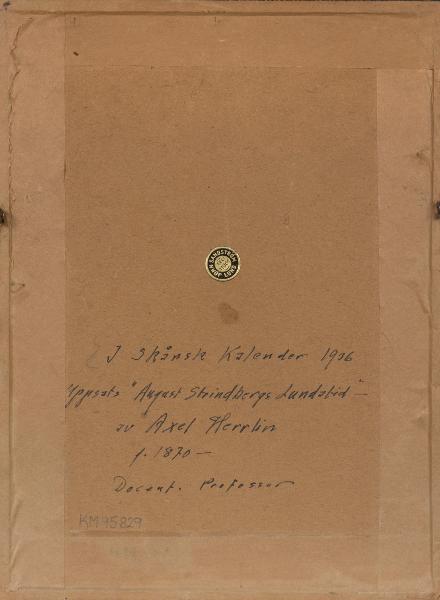 SANDSTRÖM
LUND
I Skånsk Kalender 1936
Uppsats "August Strindbergs Lundatid" –
av Axel Herrlin
f. 1870 –
Docent. Professor
KM 95829